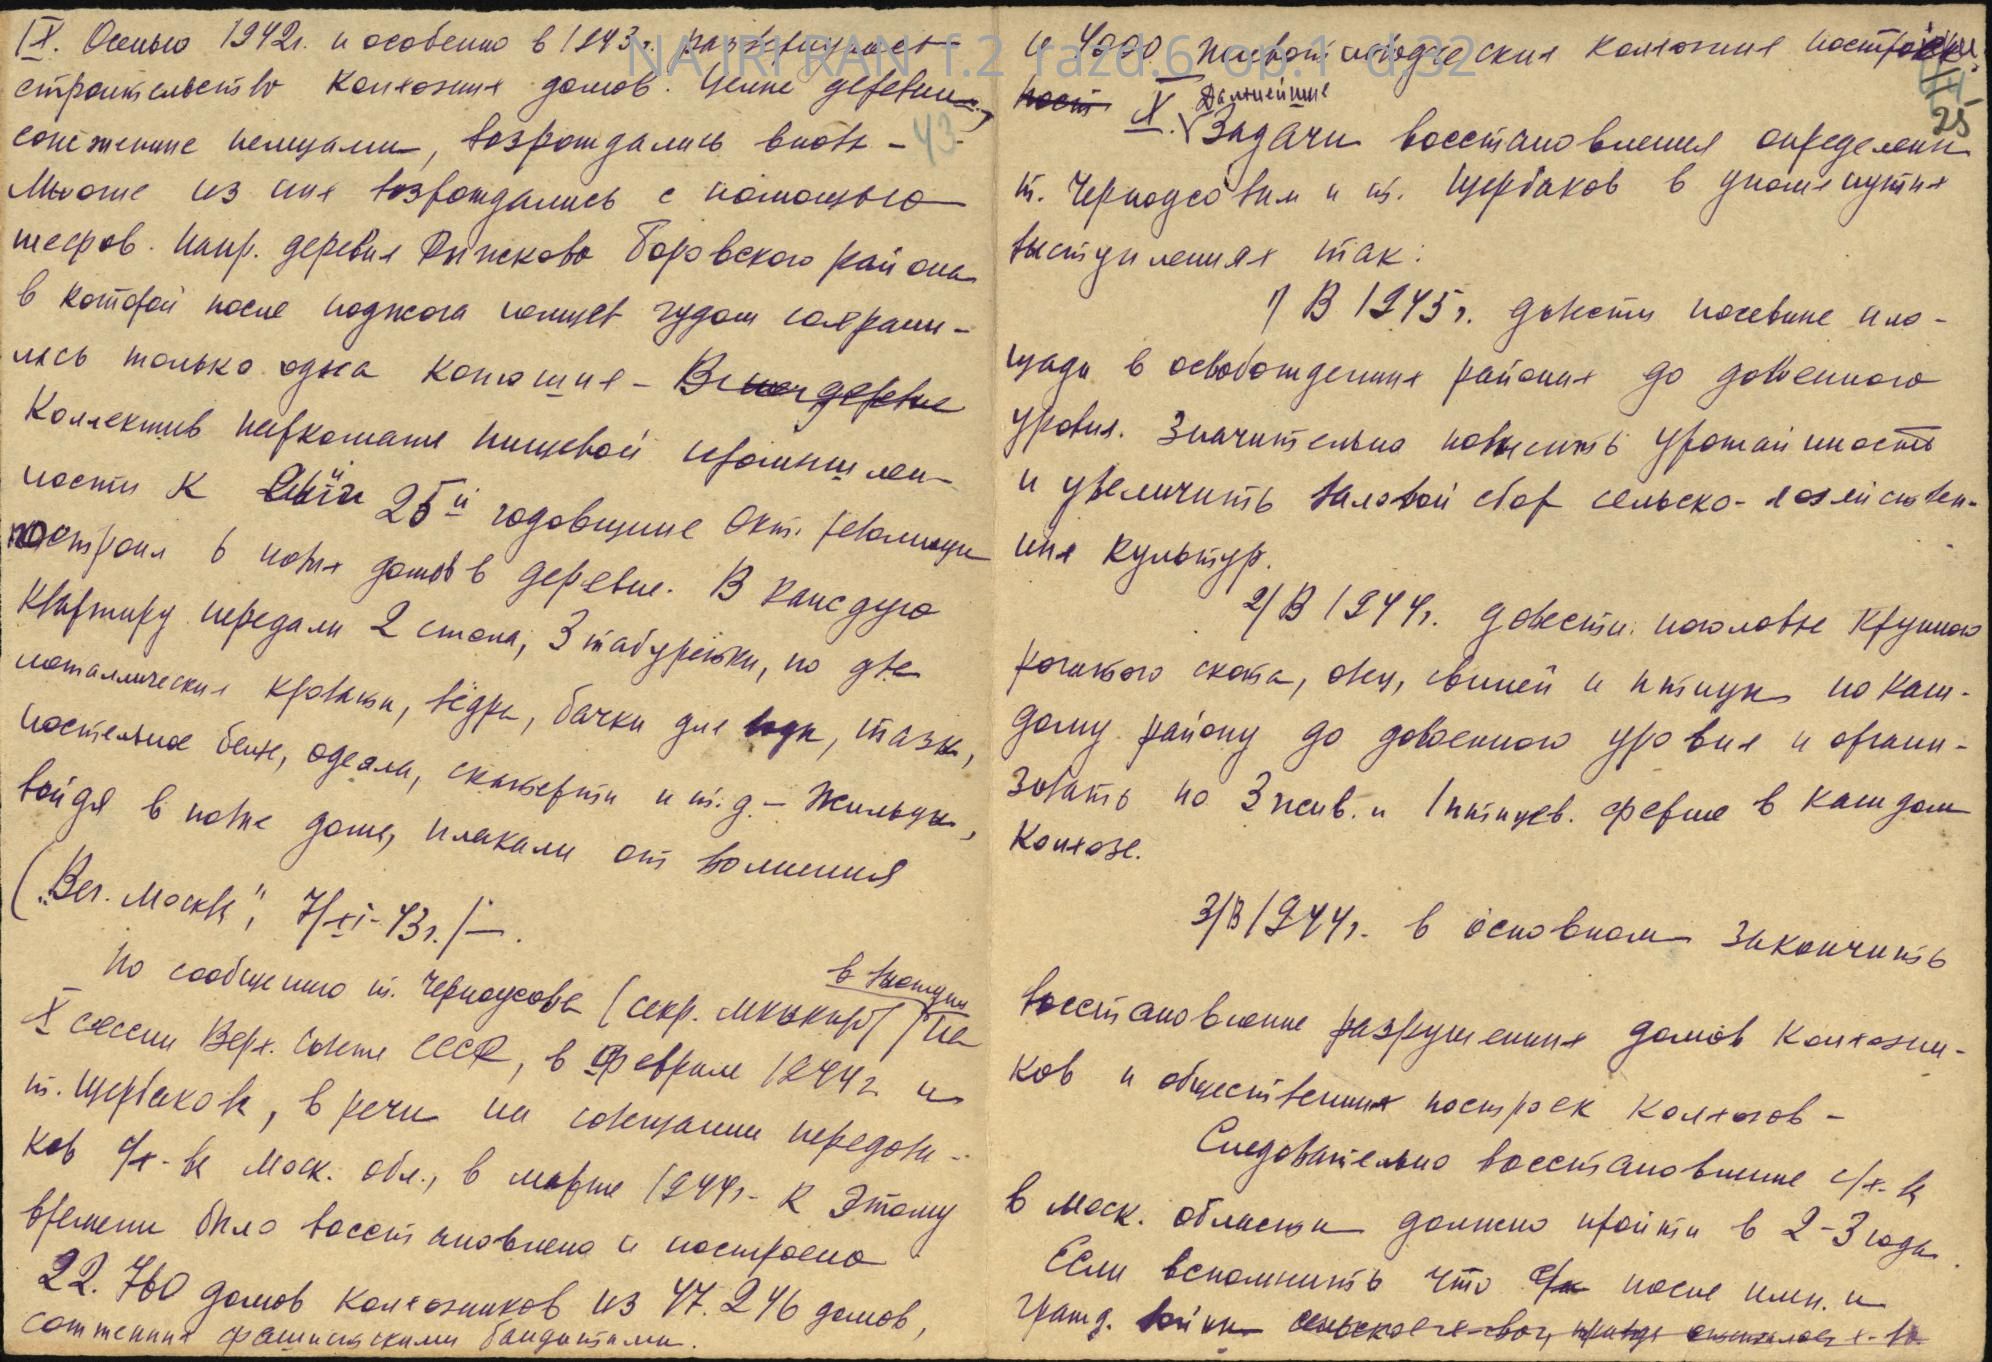 NA IRI RAN f.2 razd.6 op.1 d.32
IX. Осенью 1942г. и особенно в 1943г. развернулось
строительство колхозных домов. Целые деревни,
сожженные немцами, возрождались вновь –
43
Многие из них возрождались с помощью
шефов. Напр. деревня Рыжково Боровского района
в которой после поджога немцев чудом сохрани-
лась только одна конюшня –
Коллектив наркомата пищевой промышлен-
ности к 25й годовщине Окт. революции
построил 6 новых домов в деревне. В каждую
квартиру передали 2 стола, 3 табуретки, по две
металлических кровати, вёдра, бачки для воды, тазы,
постельное белье, одеяла, скатерти и т.д. – Жильцы,
войдя в новые дома, плакали от волнения
(„Веч. Москва", 7/XI-43г./ – .
По сообщению т. Черноусова (секр. МК и МГК) в выступл. на
X сессии Верх. Совета СССР, в феврале 1944г и
т. Щербакова, в речи на совещании передови-
ков с/х-ва Моск. обл., в марте 1944г. к этому
времени было восстановлено и построено
22.760 домов колхозников из 47.246 домов,
сожженных фашистскими бандитами.
и 4000 животноводческих колхозных построек.
25
X. Дальнейшие Задачи восстановления определены
т. Черноусовым и т. Щербаков в упомянутых
выступлениях так:
1) В 1945г. довести посевные пло-
щади в освобожденных районах до довоенного
уровня. Значительно повысить урожайность
и увеличить валовой сбор сельско-хозяйствен-
ных культур.
2/ В 1944г. довести поголовье крупного
рогатого скота, овец, свиней и птицы по каж-
дому району до довоенного уровня и органи-
зовать по 3 жив. и 1 птицев. ферме в каждом
колхозе.
3/ В 1944г. в основном закончить
восстановление разрушенных домов колхозни-
ков и общественных построек колхозов –
Следовательно восстановление с/х-ва
в Моск. области должно пройти в 2-3 года.
Если вспомнить что после имп. и
гражд. войны